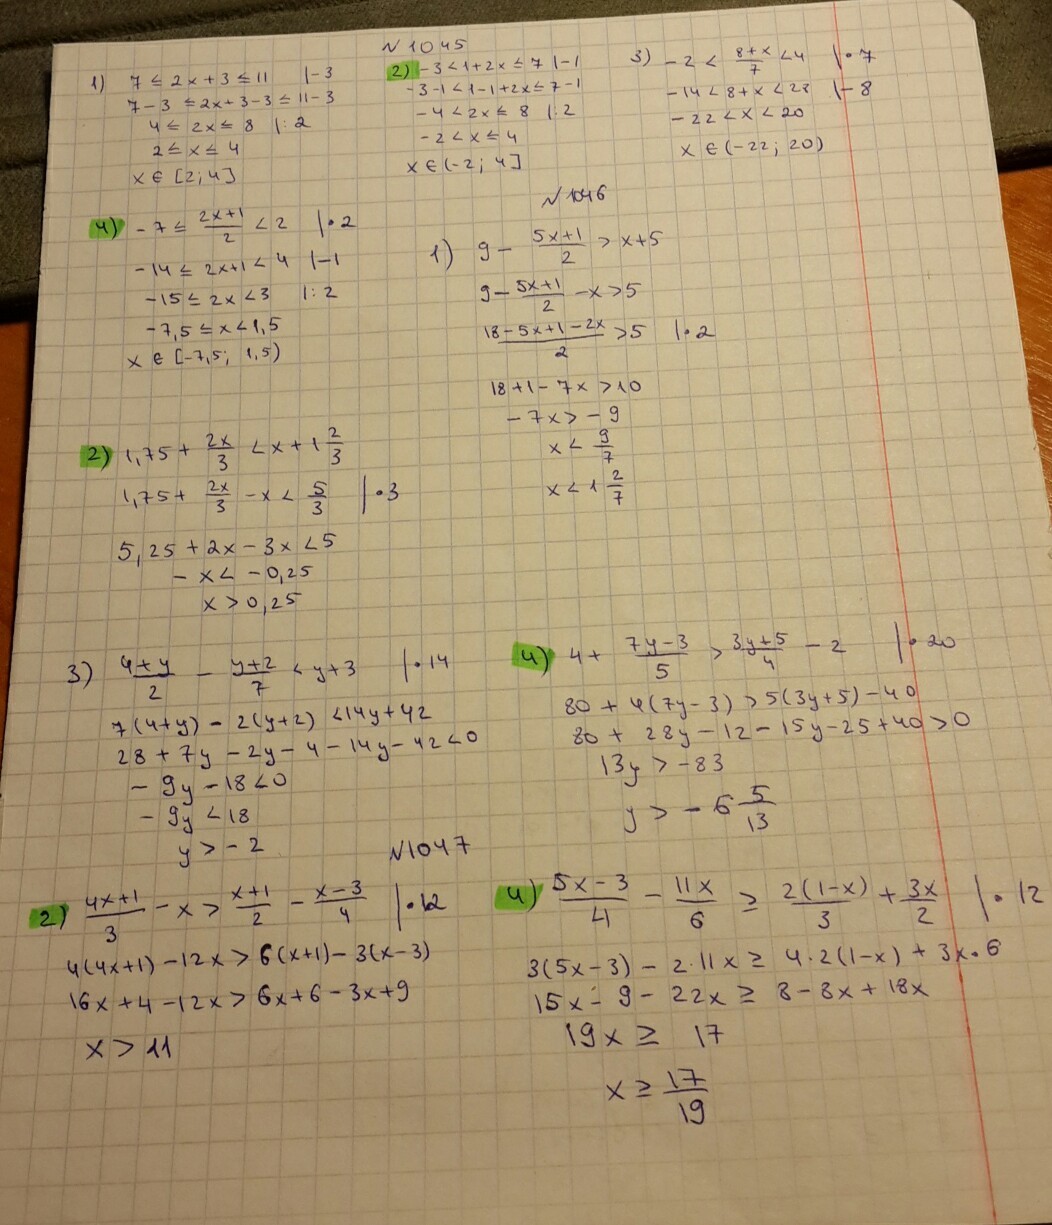 N 1045
1) 7 ≤ 2x + 3 ≤ 11 |-3
7 - 3 ≤ 2x + 3 - 3 ≤ 11 - 3
4 ≤ 2x ≤ 8 |: 2
2 ≤ x ≤ 4
x ∈ [2; 4]
2) -3 < 1 + 2x ≤ 7 |-1
-3-1 < 1-1+2x ≤ 7-1
-4 < 2x ≤ 8 |:2
-2 < x ≤ 4
x ∈ (-2; 4]
3) -2 < (8+x)/7 < 4 |• 7
-14 < 8+x < 28 |- 8
-22 < x < 20
x ∈ (-22; 20)
4) -7 ≤ (2x+1)/2 < 2 |• 2
-14 ≤ 2x+1 < 4 |-1
-15 ≤ 2x < 3 |: 2
-7,5 ≤ x < 1,5
x ∈ [-7,5; 1,5)
N 1046
1) 9 - (5x+1)/2 > x+5
9 - (5x+1)/2 - x > 5
(18-5x+1-2x)/2 > 5 |• 2
18+1-7x > 10
-7x > -9
x < 9/7
x < 1 2/7
2) 1,75 + 2x/3 < x + 1 2/3
1,75 + 2x/3 - x < 5/3 |• 3
5,25 + 2x - 3x < 5
-x < -0,25
x > 0,25
3) (4+y)/2 - (y+2)/7 < y+3 |• 14
7(4+y) - 2(y+2) < 14y + 42
28 + 7y - 2y - 4 - 14y - 42 < 0
-9y - 18 < 0
-9y < 18
y > -2
4) 4 + (7y-3)/5 > (3y+5)/4 - 2 |• 20
80 + 4(7y-3) > 5(3y+5) - 40
80 + 28y - 12 - 15y - 25 + 40 > 0
13y > -83
y > -6 5/13
N 1047
2) (4x+1)/3 - x > (x+1)/2 - (x-3)/4 |• 12
4(4x+1) - 12x > 6(x+1) - 3(x-3)
16x + 4 - 12x > 6x + 6 - 3x + 9
x > 11
4) (5x-3)/4 - 11x/6 ≥ 2(1-x)/3 + 3x/2 |• 12
3(5x-3) - 2·11x ≥ 4·2(1-x) + 3x•6
15x - 9 - 22x ≥ 8 - 8x + 18x
19x ≥ 17
x ≥ 17/19